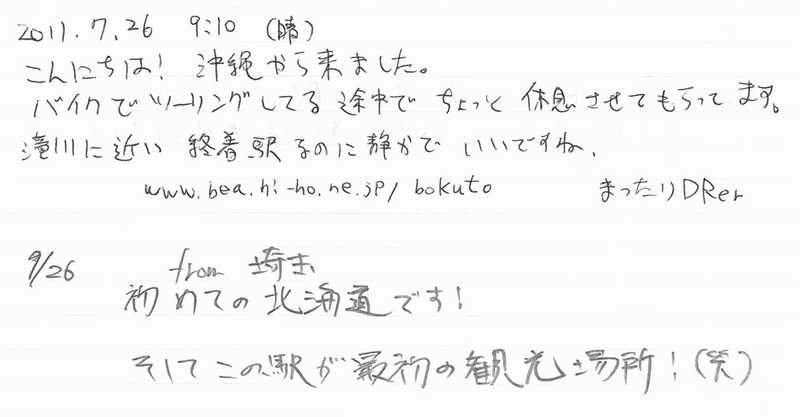 2011.7.26 9:10 (晴)
こんにちは! 沖縄から来ました。
バイクでツーリングしてる途中でちょっと休息させてもらってます。
滝川に近い終着駅なのに静かでいいですね.
www.bea.hi-ho.ne.jp/bokuto まったりDRer
9/26 from 埼玉
初めての北海道です!
そしてこの駅が最初の観光場所!(笑)